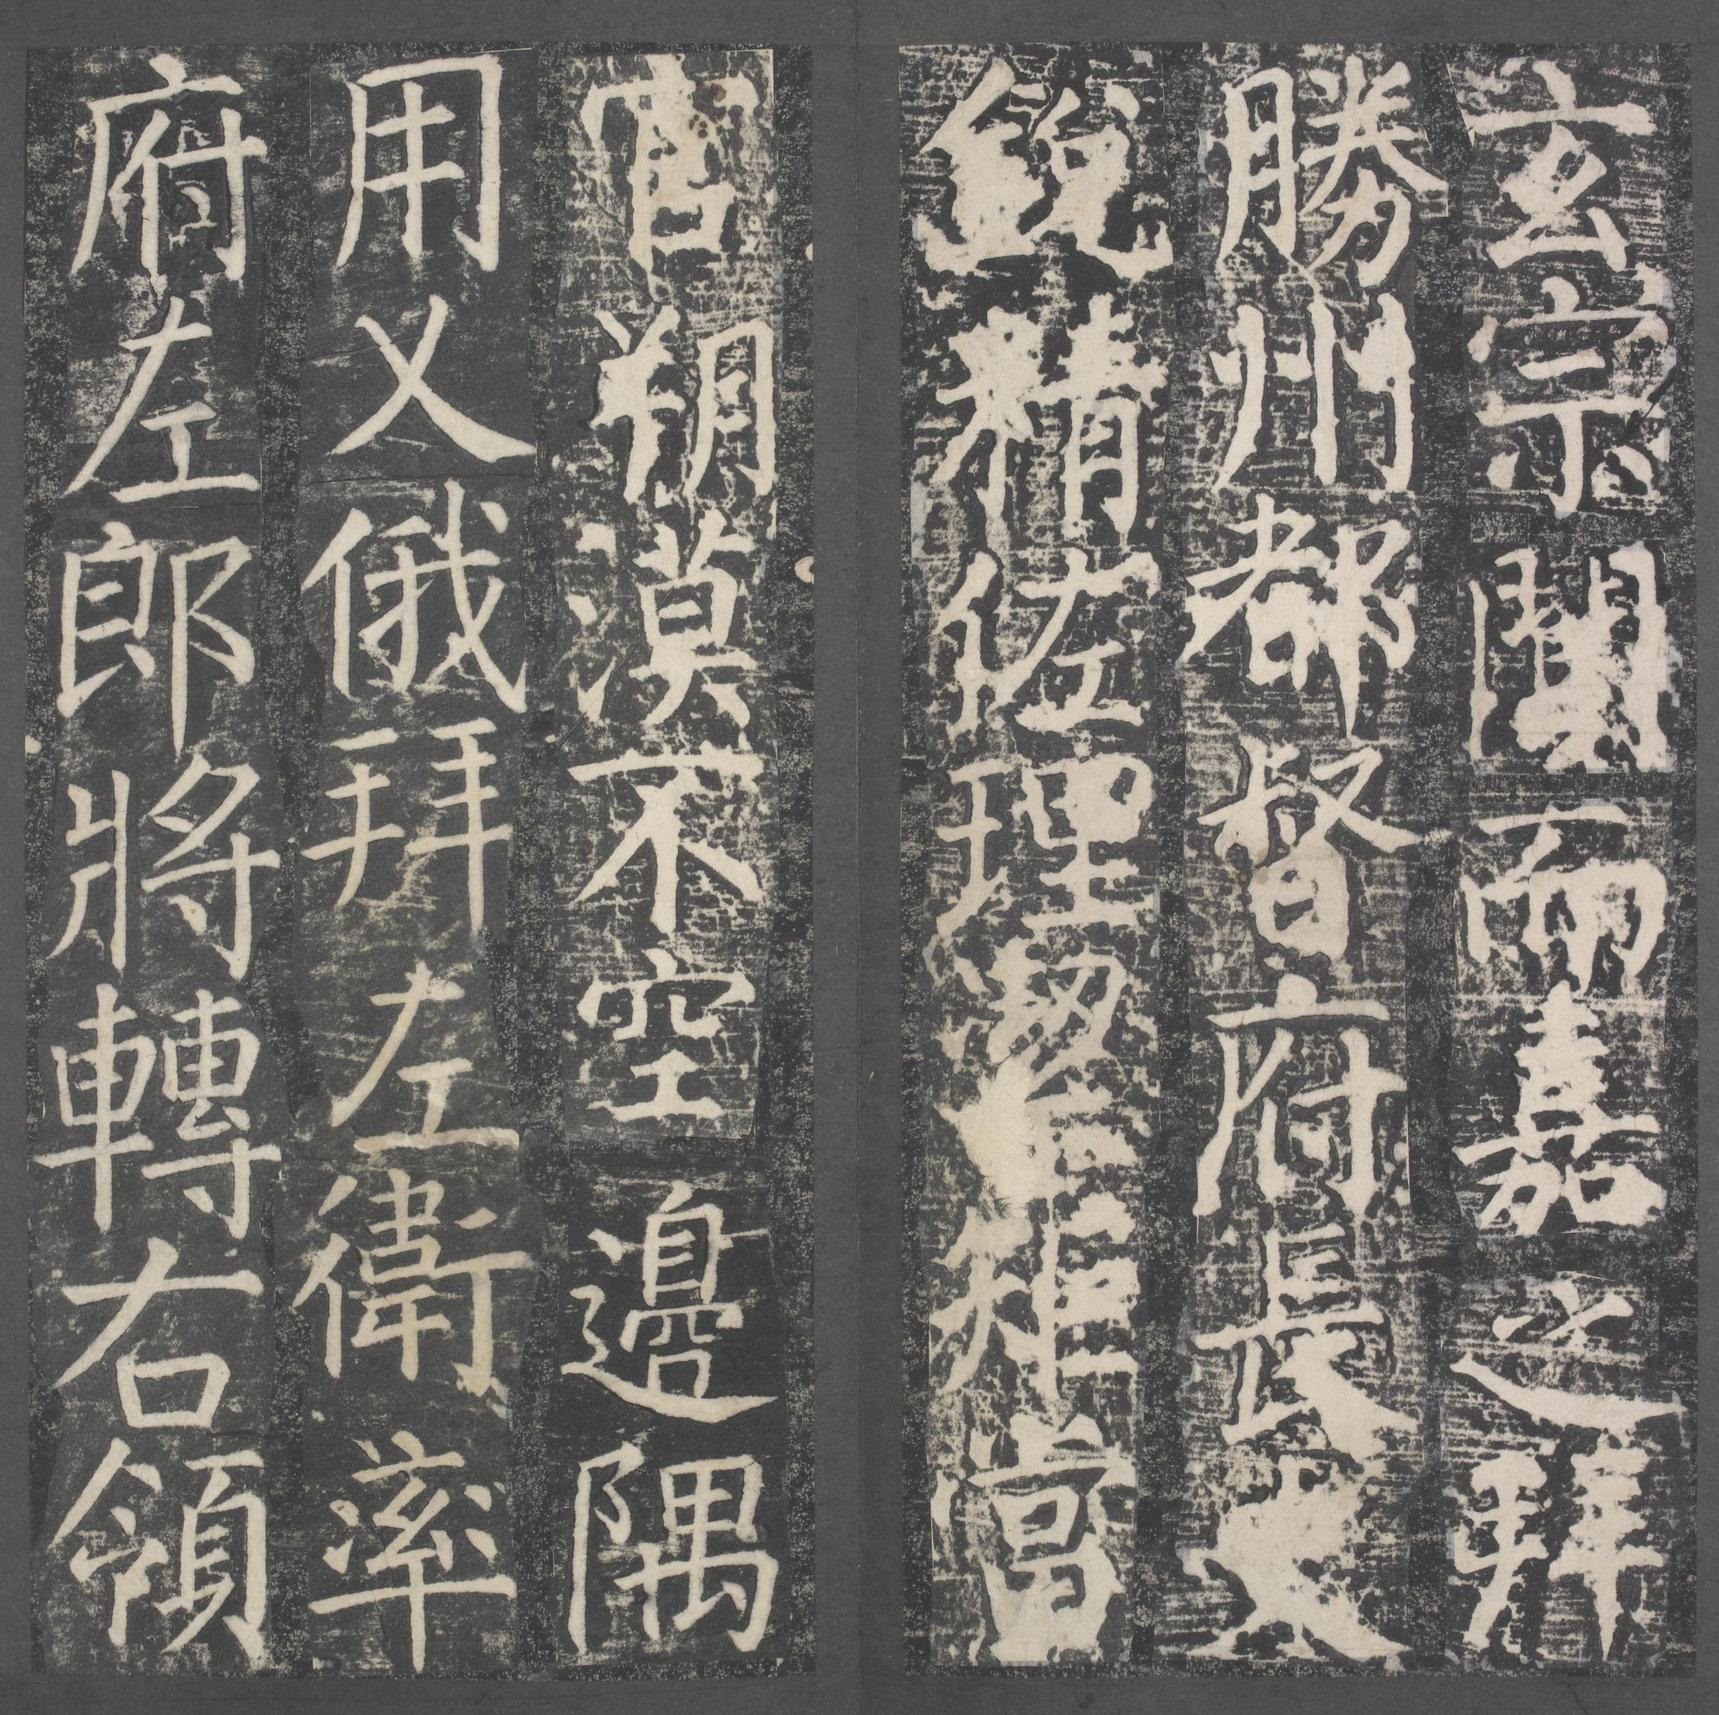 玄宗聞而嘉之拜
勝州都督府長史
銳精佐理絜矩當
官朔漠不空邊隅
用乂俄拜左衛率
府左郎將轉右領